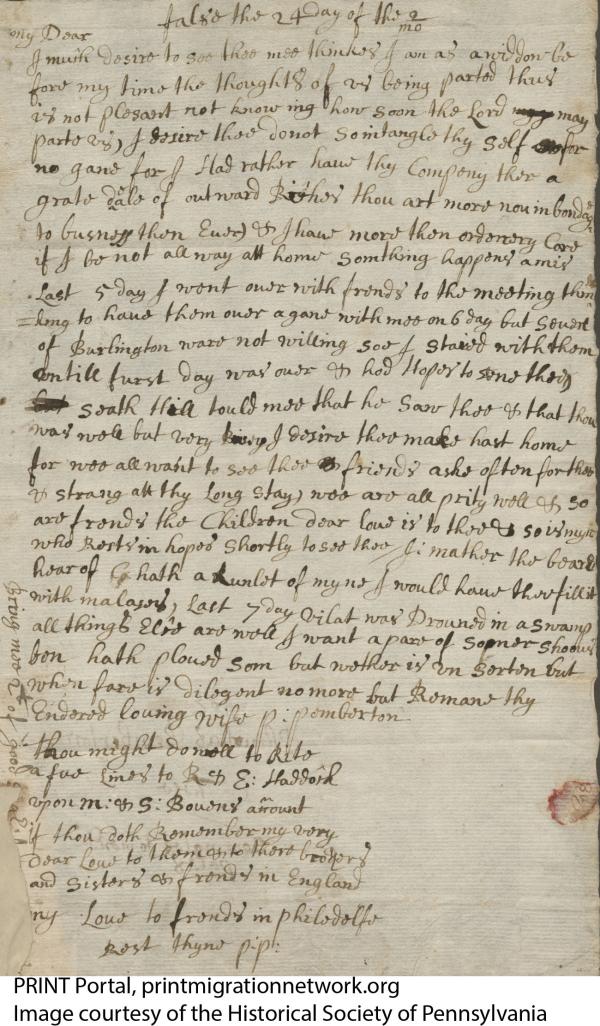 falls the 24 day of the 2/mo
my Dear
I much desire to see thee mee thinkes I am as a widdow be
fore my time the thoughts of us being parted thus
is not plesant not know ing how soon the Lord may
parte us, I desire thee do not So intangle thy self for
no gane for I Had rather have thy Compeny then a
grate deale of outward Riches thou art more now in bondag
to busness then Ever) & I have more then ordenery Care
if I be not all way att home Somthing happens amis
Last 5 day I went over with frends to the meeting thin
=king to have them over agane with mee on 6 day but Severl
of Burlington ware not willing soe I staied with them
untill furst day was over & had Hopes to sene thee)
seath Hill tould mee that he saw thee & that thou
was well but very I desire thee make hast home
for wee all want to see thee & friends aske often for thee
& strang att thy Long stay) wee are all prity well & so
are frends the Children dear love is to thee & so is myne
who Rests in hopes shortly to see thee Ji: mather the beare
hear of hath a Runlet of myne I would have thee fill it
with malases, Last 7 day Vilat was Drouned in a swamp
all things Else are well I want a pare of Somer shoows
ben hath ploued som but wether is un serten but
when fare is dilegent no more but Remane thy
Endered loving wife p: pemberton
thou might do well to Rite
a fue Lines to R & E: Haddock
upon m: & S: Bovens account
if thou doth Remember my very
Dear Love to them & to there brothers
and Sisters & frends in England
my Love to frends in philedelfe
Rest thyne p:p:
bring more of good
PRINT Portal, printmigrationnetwork.org
Image courtesy of the Historical Society of Pennsylvania